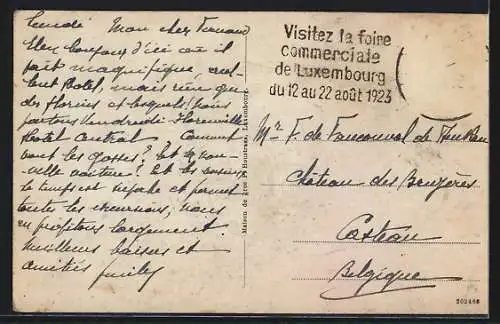 Lundi Mon cher Fernand
Bien bonjour d'ici où il
fait magnifique, cul-
but hotel, mais rien que
des florins et lesquels! Nous
partons Vendredi - Florenville
Hotel Central Comment
vont les gosses? Et la nou-
velle voiture? Et les
le temps est superbe et permet
toute les excursions, nous
en profitons largement
Meilleurs baisers et
amitiés
Maison de gros P. Houstraas, Luxembourg.
Visitez la foire
commerciale
de Luxembourg
du 12 au 22 août 1923
Mr F. de Fauconval de
Château des Bruyères
Casteau
Belgique
202466